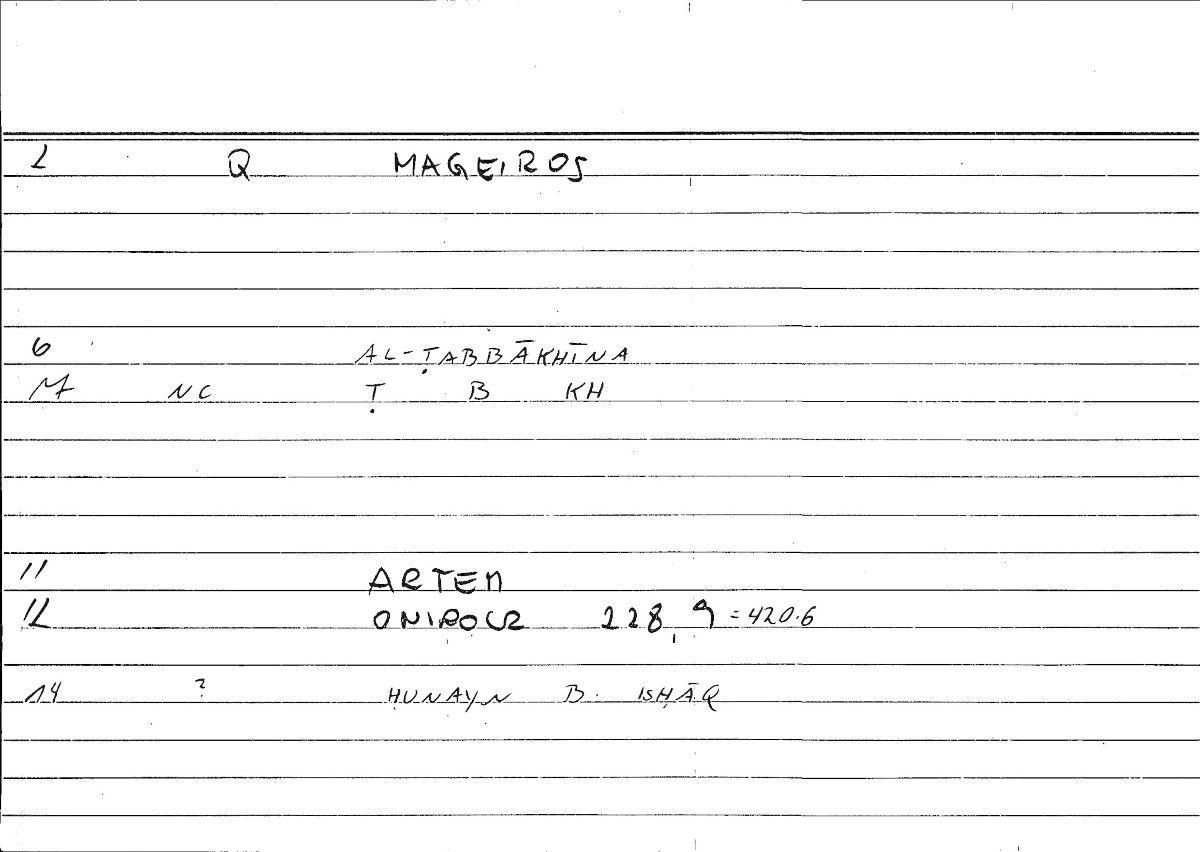 2 Q MAGEIROS
6 AL-ṬABBĀKHĪNA
M NC Ṭ B KH
11 ARTEM
12 ONIROCR 228,9 = 420.6
14 ? ḤUNAYN B. ISḤĀQ